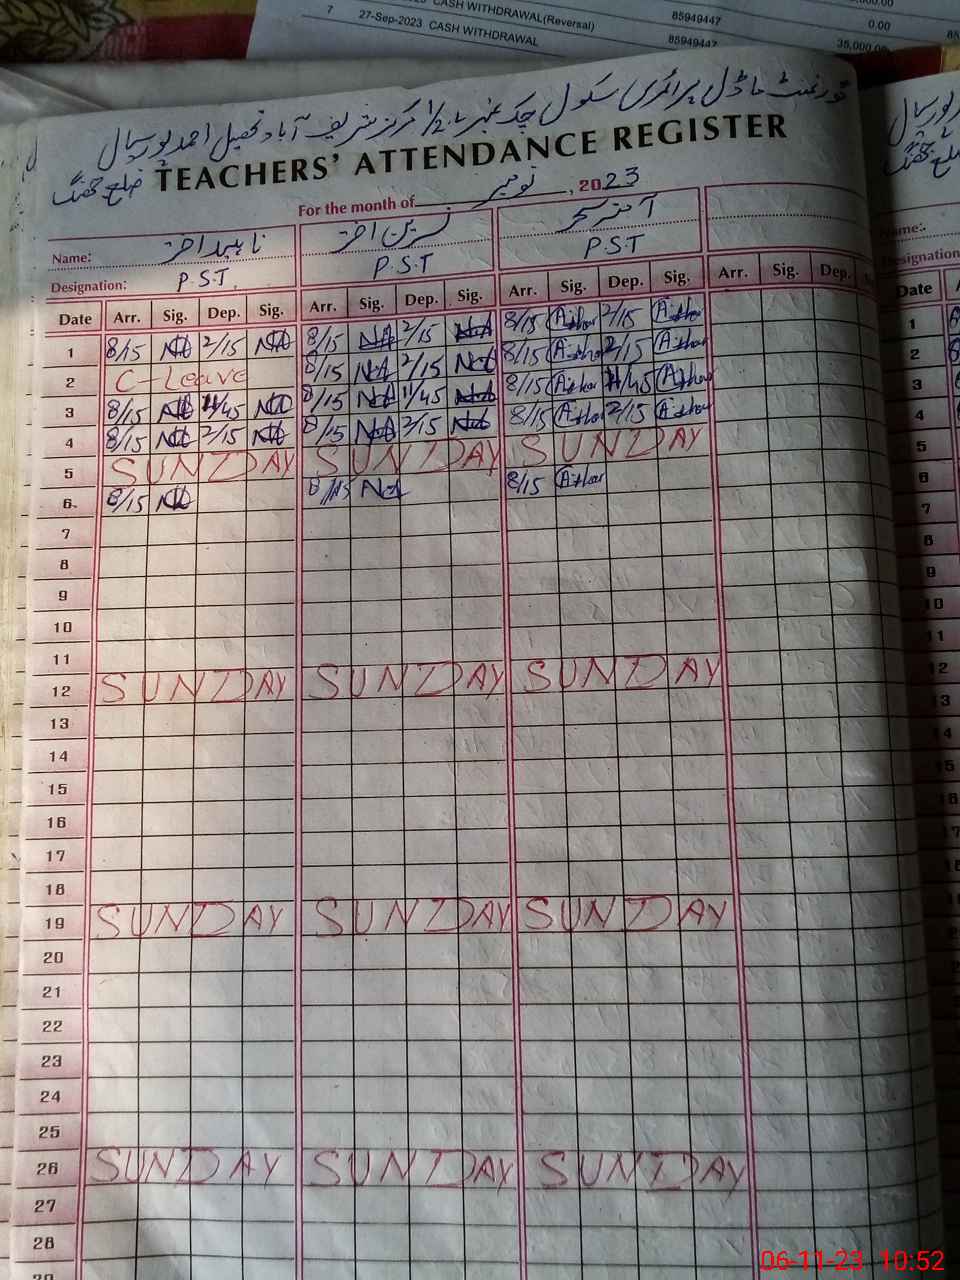 000.00
7 27-Sep-2023 CASH WITHDRAWAL(Reversal) 85949447 0.00
CASH WITHDRAWAL 85949447 35,000.00
گورنمنٹ ماڈل پرائمری سکول چک نمبر 1/2 مرکز شریف آباد تحصیل احمد پور سیال
ضلع جھنگ
TEACHERS' ATTENDANCE REGISTER
For the month of نومبر, 2023
Name: ناہید اختر نسرین اختر
Designation: P.S.T. P.S.T P.S.T
Date Arr. Sig. Dep. Sig. Arr. Sig. Dep. Sig. Arr. Sig. Dep. Sig. Arr. Sig. Dep.
1 8/15 2/15 8/15 2/15 8/15 2/15
2 C-Leave 8/15 2/15 8/15 2/15
3 8/15 11/45 8/15 11/45 8/15 11/45
4 8/15 2/15 8/15 2/15 8/15 2/15
5 SUNDAY SUNDAY SUNDAY
6 8/15 8/15 8/15
7
8
9
10
11
12 SUNDAY SUNDAY SUNDAY
13
14
15
16
17
18
19 SUNDAY SUNDAY SUNDAY
20
21
22
23
24
25
26 SUNDAY SUNDAY SUNDAY
27
28
29
Name:
Designation
Date
1
2
3
4
5
6
7
8
9
10
11
12
13
14
15
16
17
18
06-11-23 10:52